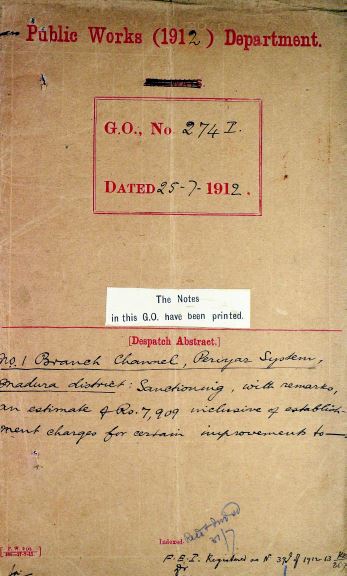 Public Works (1912) Department.
G.O., No 274 I.
DATED 25-7-1912.
The Notes
in this G.O. have been printed.
[Despatch Abstract.]
No. 1 Branch Channel, Periyar System,
Madura district: Sanctioning, with remarks,
an estimate of Rs. 7,909 inclusive of establish-
ment charges for certain improvement to—
Indexed.
P. W. D.
F.E.I. Registered as No of 1912-13